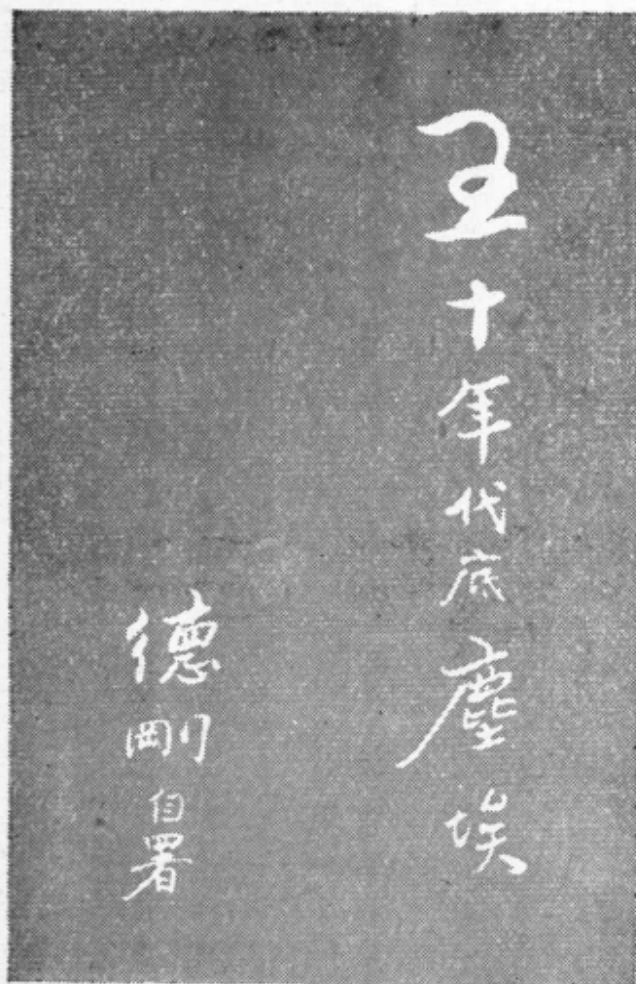 五十年代底塵埃
德剛自署